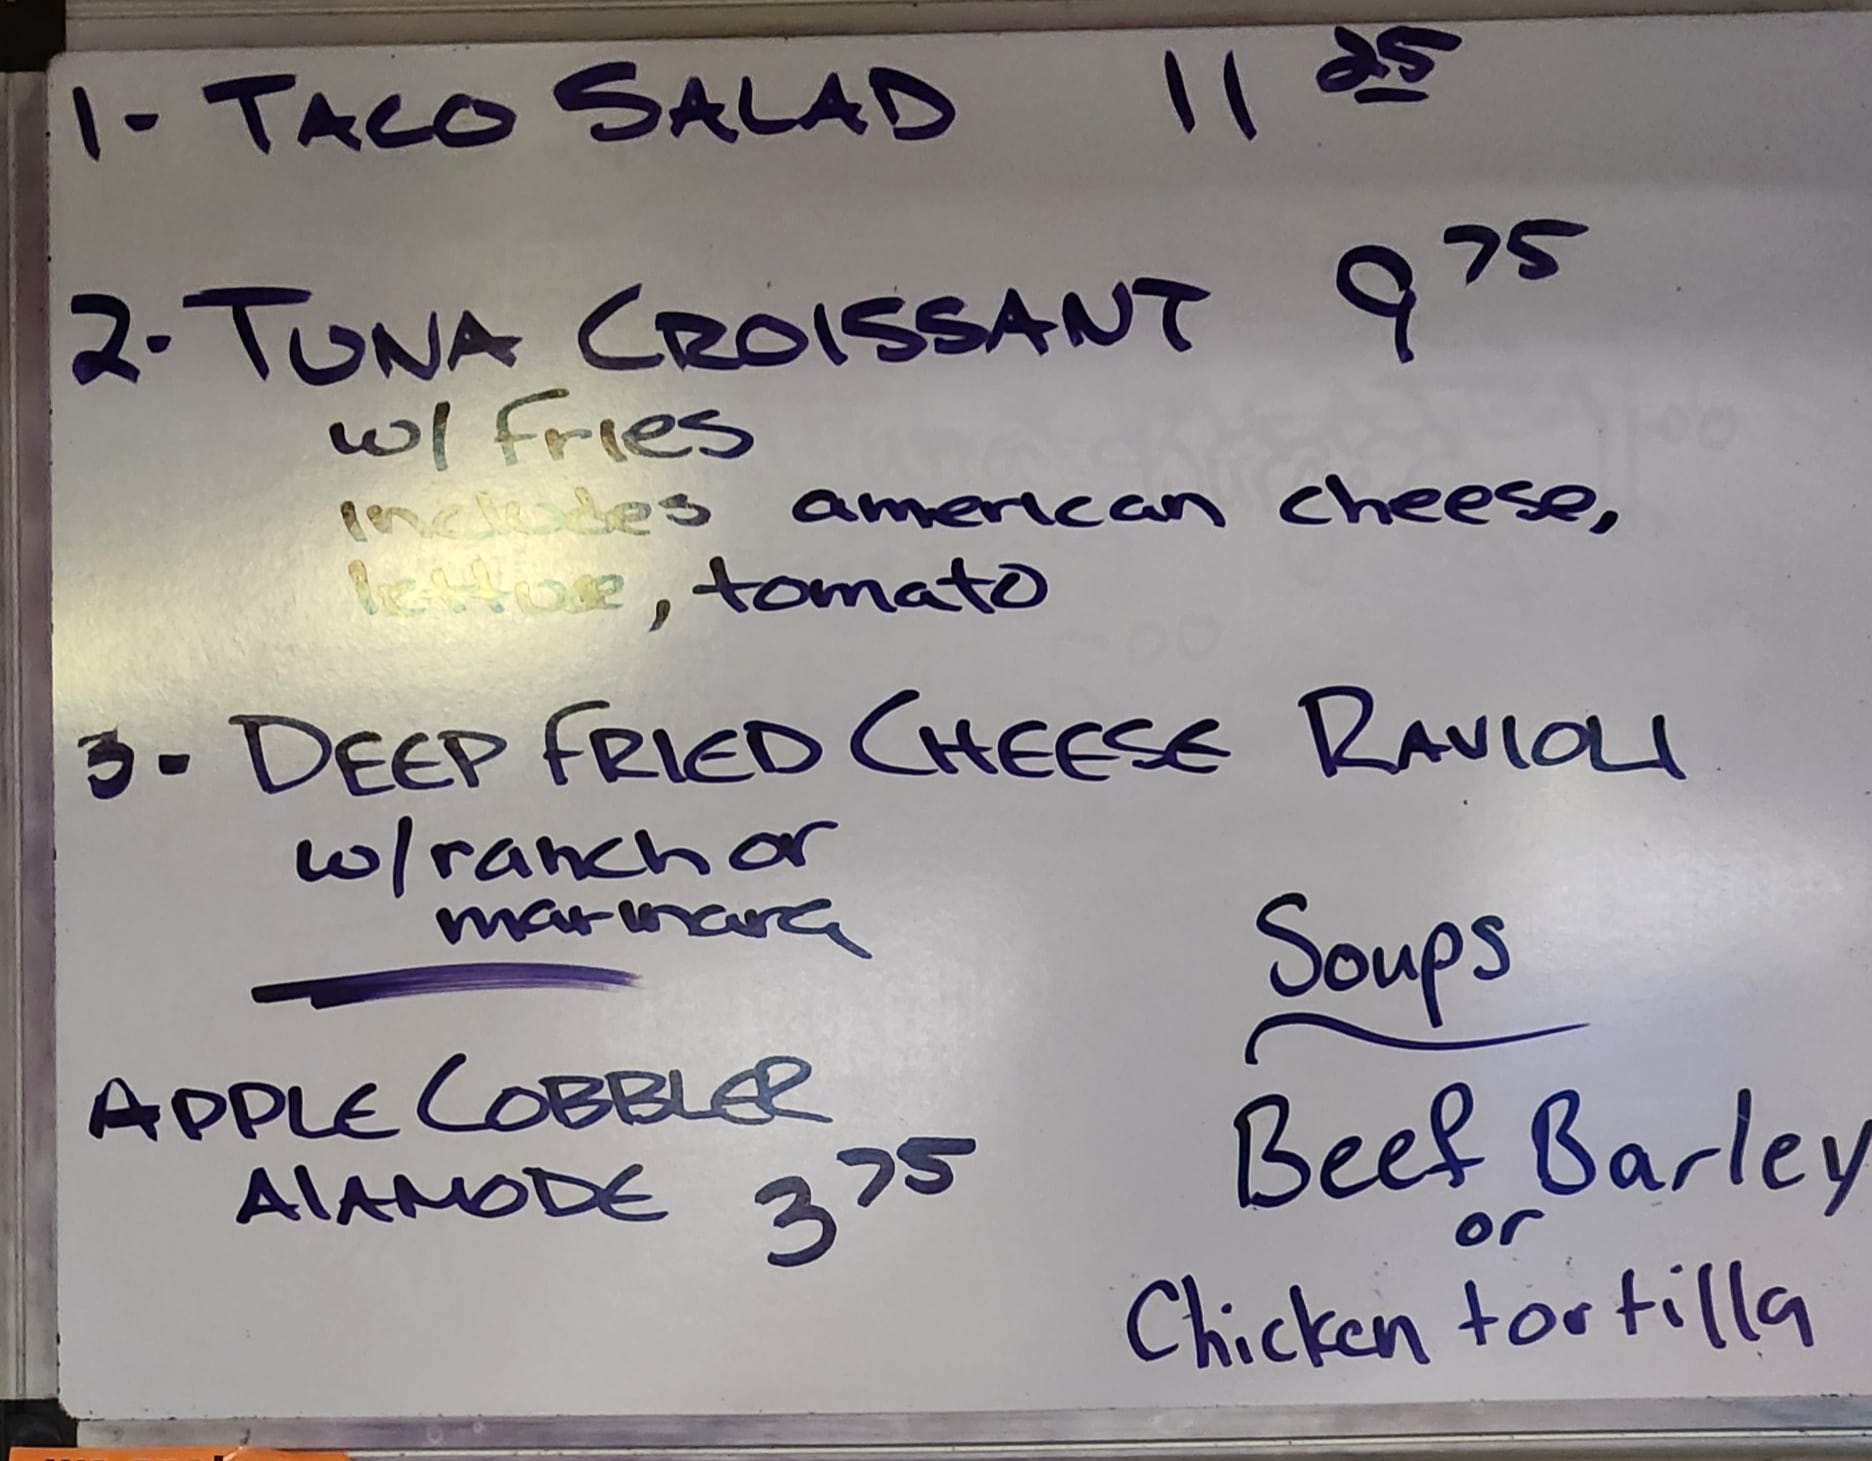 1- TACO SALAD 11 25
2- TUNA CROISSANT 9 75
w/ fries
includes american cheese,
lettuce, tomato
3- DEEP FRIED CHEESE RAVIOLI
w/ranch or
marinara
APPLE COBBLER
AlAMODE 3 75
Soups
Beef Barley
or
Chicken tortilla